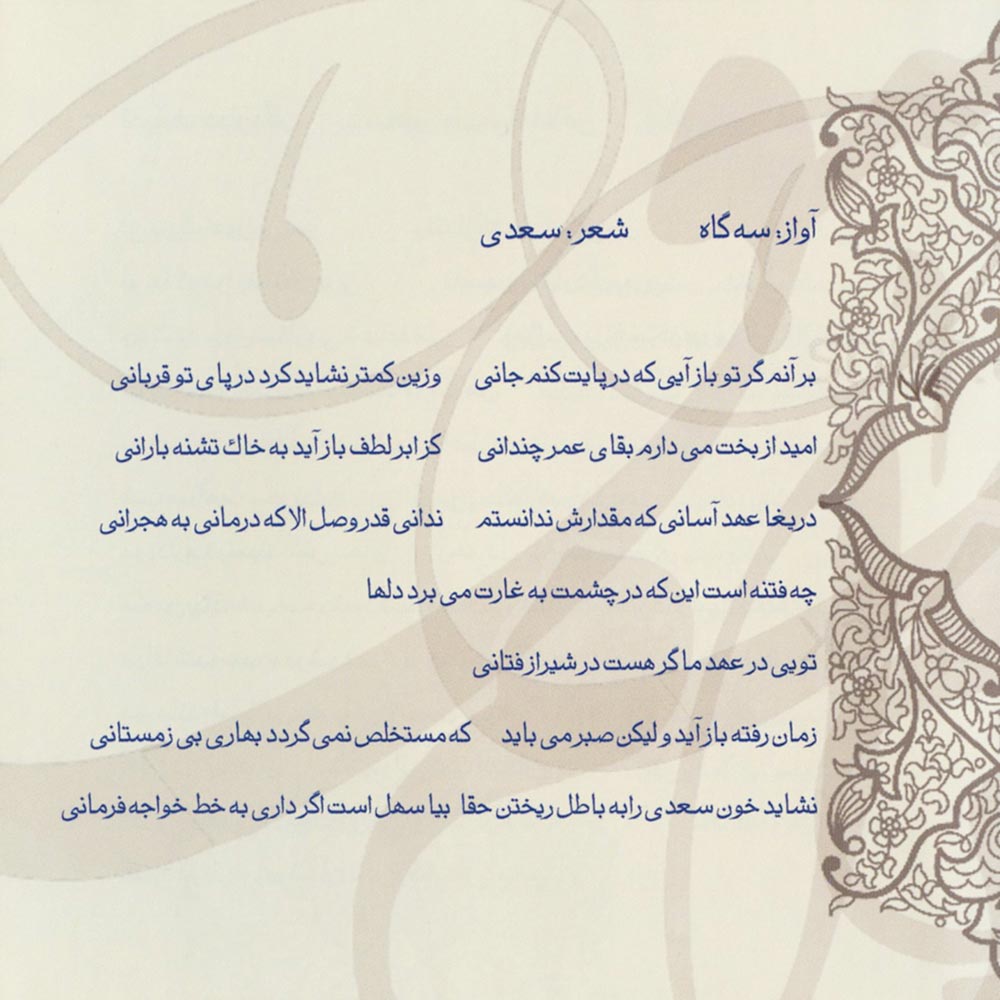 آواز: سه‌گاه شعر: سعدی
بر آنم گر تو باز آیی که در پایت کنم جانی وزین کمتر نشاید کرد در پای تو قربانی
امید از بخت می دارم بقای عمر چندانی کز ابر لطف باز آید به خاك تشنه بارانی
دریغا عهد آسانی که مقدارش ندانستم ندانی قدر وصل الا که درمانی به هجرانی
چه فتنه است این که در چشمت به غارت می برد دلها
تویی در عهد ما گر هست در شیراز فتانی
زمان رفته باز آید ولیکن صبر می باید که مستخلص نمی گردد بهاری بی زمستانی
نشاید خون سعدی را به باطل ریختن حقا بیا سهل است اگر داری به خط خواجه فرمانی